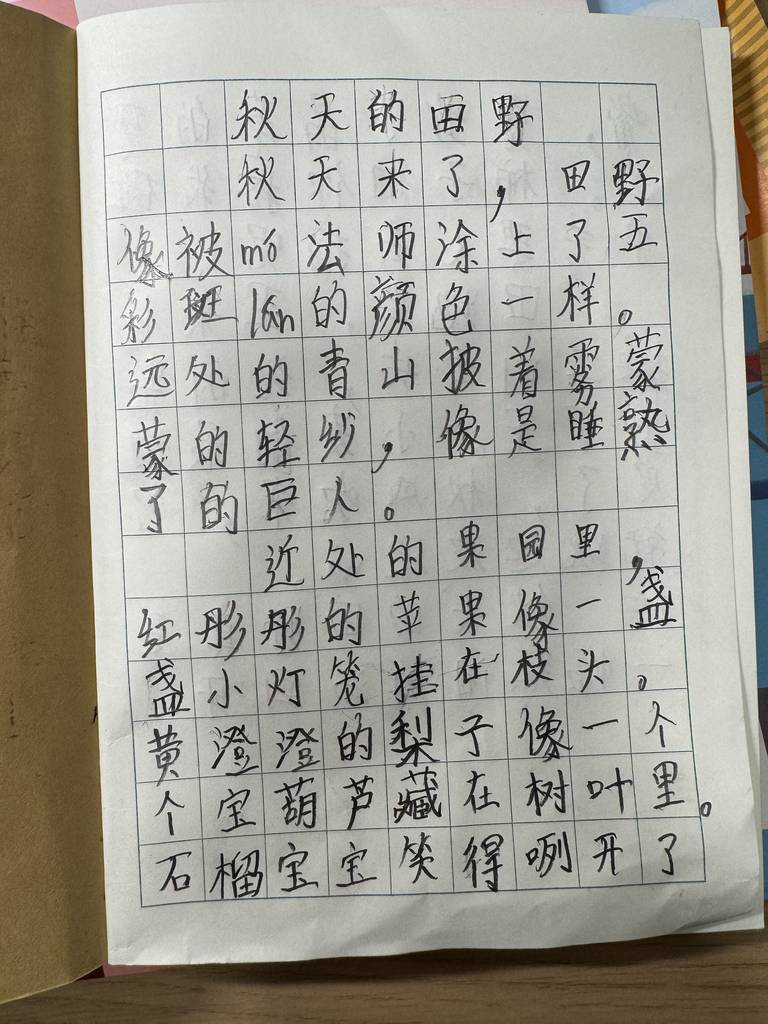 秋天的田野
秋天来了,田野
像被mó法师涂上了五
彩斑lán的颜色一样。
远处的青山披着雾蒙
蒙的轻纱,像是睡熟
了的巨人。
近处的果园里,
红彤彤的苹果像一盏
盏小灯笼挂在枝头。
黄澄澄的梨子像一个
个宝葫芦藏在树叶里。
石榴宝宝笑得咧开了